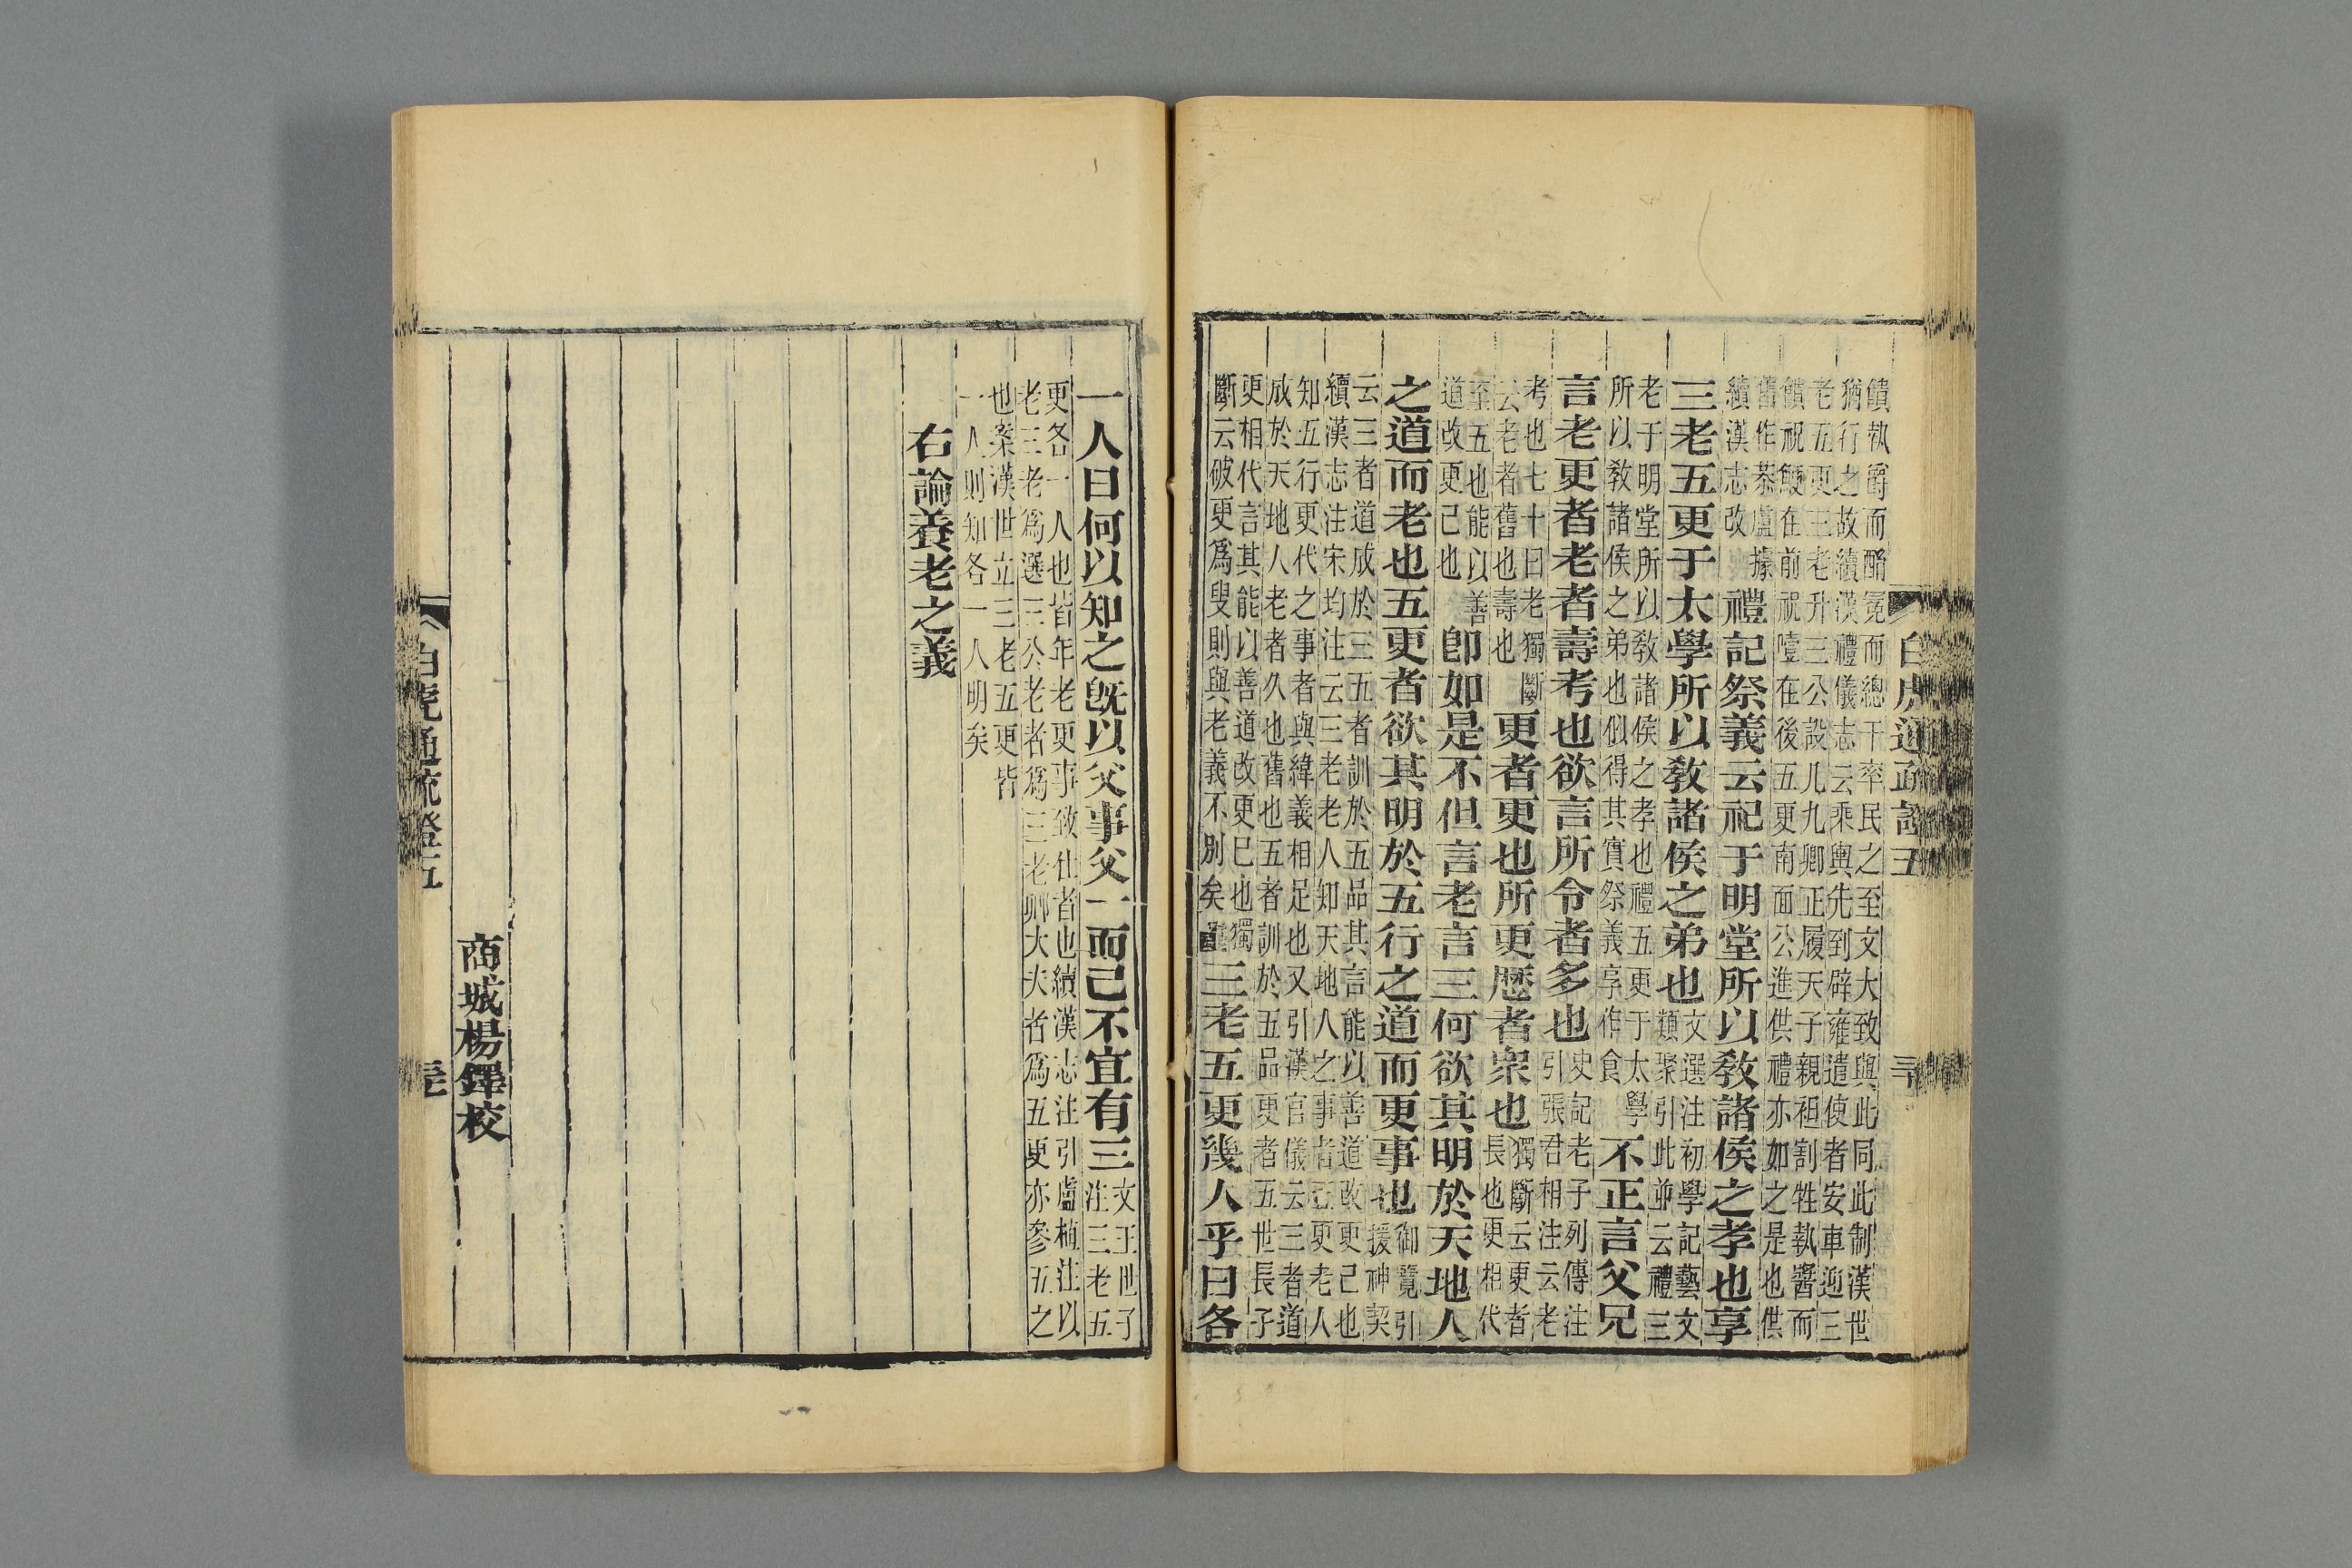 饋執爵而酳冕而總干率民之至文大致與此同此制漢世
猶行之故續漢禮儀志云乘輿先到辟雍遣使者安車迎三
老五更三老升三公設几九卿正履天子親袒割牲執醬而
饋祝鯁在前祝噎在後五更南面公進供禮亦如之是也供
舊作恭盧據
續漢志改
禮記祭義云祀于明堂所以敎諸侯之孝也享
三老五更于太學所以敎諸侯之弟也
文選注初學記藝文
類聚引此並云禮三
老于明堂所以敎諸侯之孝也禮五更于太學
所以敎諸侯之弟也似得其實祭義享作食
不正言父兄
言老更者老者壽考也欲言所令者多也
史記老子列傳注
引張君相注云老
考也七十曰老獨斷
云老者舊也壽也
更者更也所更歷者衆也
獨斷云更者
長也更相代
至五也能以善
道改更己也
卽如是不但言老言三何欲其明於天地人
之道而老也五更者欲其明於五行之道而更事也
御覽引
援神契
云三者道成於三五者訓於五品其言能以善道改更己也
續漢志注宋均注云三老老人知天地人之事者五更老人
知五行更代之事者與緯義相足也又引漢官儀云三者道
成於天地人老者久也舊也五者訓於五品更者五世長子
更相代言其能以善道改更已也獨
斷云破更爲叟則與老義不別矣
三老五更幾人乎曰各
白虎通疏證五
一人曰何以知之旣以父事父一而已不宜有三
文王世子
注三老五
更各一人也皆年老更事致仕者也續漢志注引盧植注以
老三老爲選三公老者爲三老卿大夫者爲五更亦參五之
也案漢世立三老五更皆
一人則知各一人明矣
右論養老之義
商城楊鐸校
白虎通疏證五